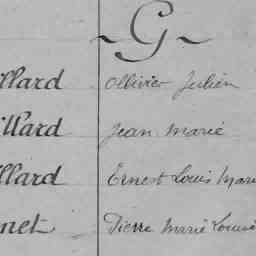 G
illard Ollivier Julien
illard Jean Marie
illard Ernest Louis Mari
net Pierre Marie Louis